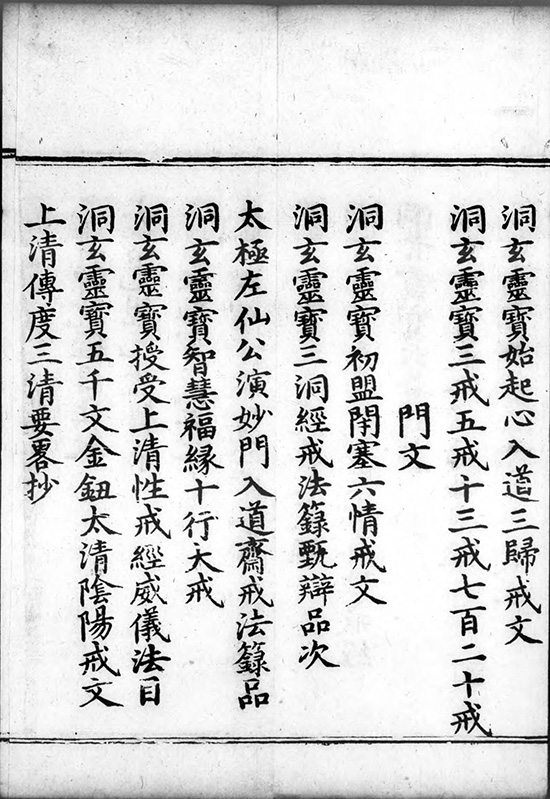 洞玄靈寶始起心入道三歸戒文
洞玄靈寶三戒五戒十三戒七百二十戒
門文
洞玄靈寶初盟閇塞六情戒文
洞玄靈寶三洞經戒法籙甄辯品次
太極左仙公演妙門入道齋戒法籙品
洞玄靈寶智慧福緣十行大戒
洞玄靈寶授受上清性戒經威儀法目
洞玄靈寶五千文金鈕太清陰陽戒文
上清傳度三清要畧抄